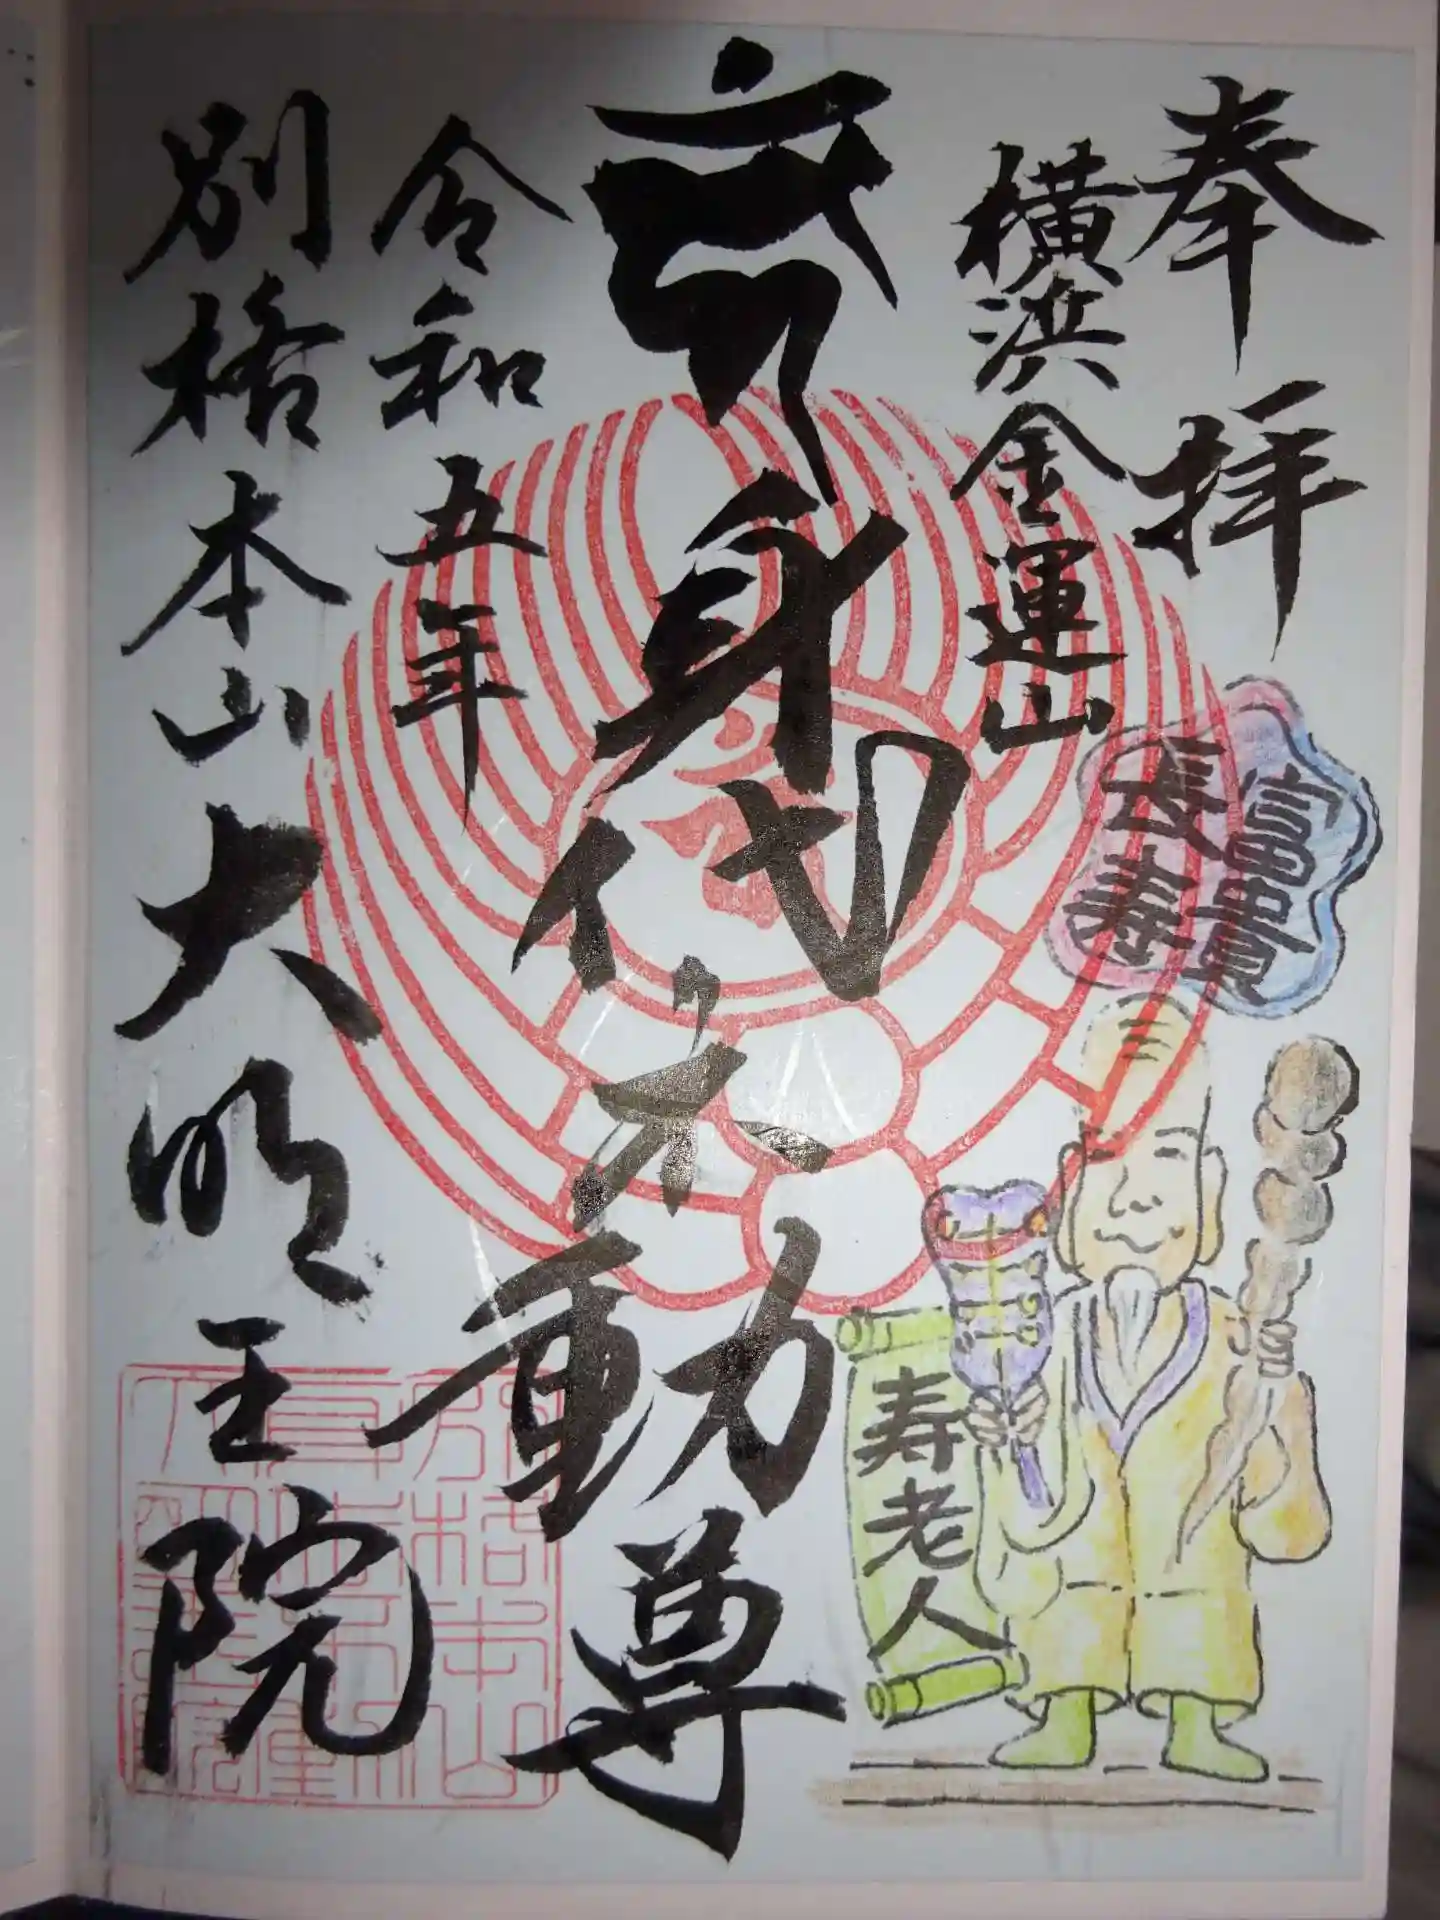 奉拝
横浜金運山
富貴
長寿
寿老人
身代不動尊
令和五年
別格本山大明王院